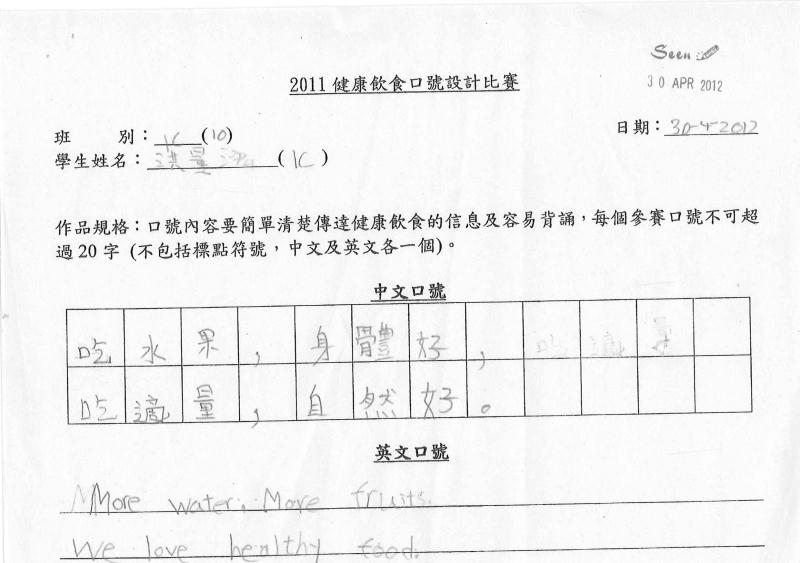 Seen
30 APR 2012
2011 健康飲食口號設計比賽
班 別：1C (10)
日期：30-4-2012
學生姓名： (1C)
作品規格：口號內容要簡單清楚傳達健康飲食的信息及容易背誦，每個參賽口號不可超
過20字 (不包括標點符號，中文及英文各一個)。
中文口號
吃水果，身體好，吃適量
吃適量，自然好。
英文口號
More water, More fruits.
We love healthy food.